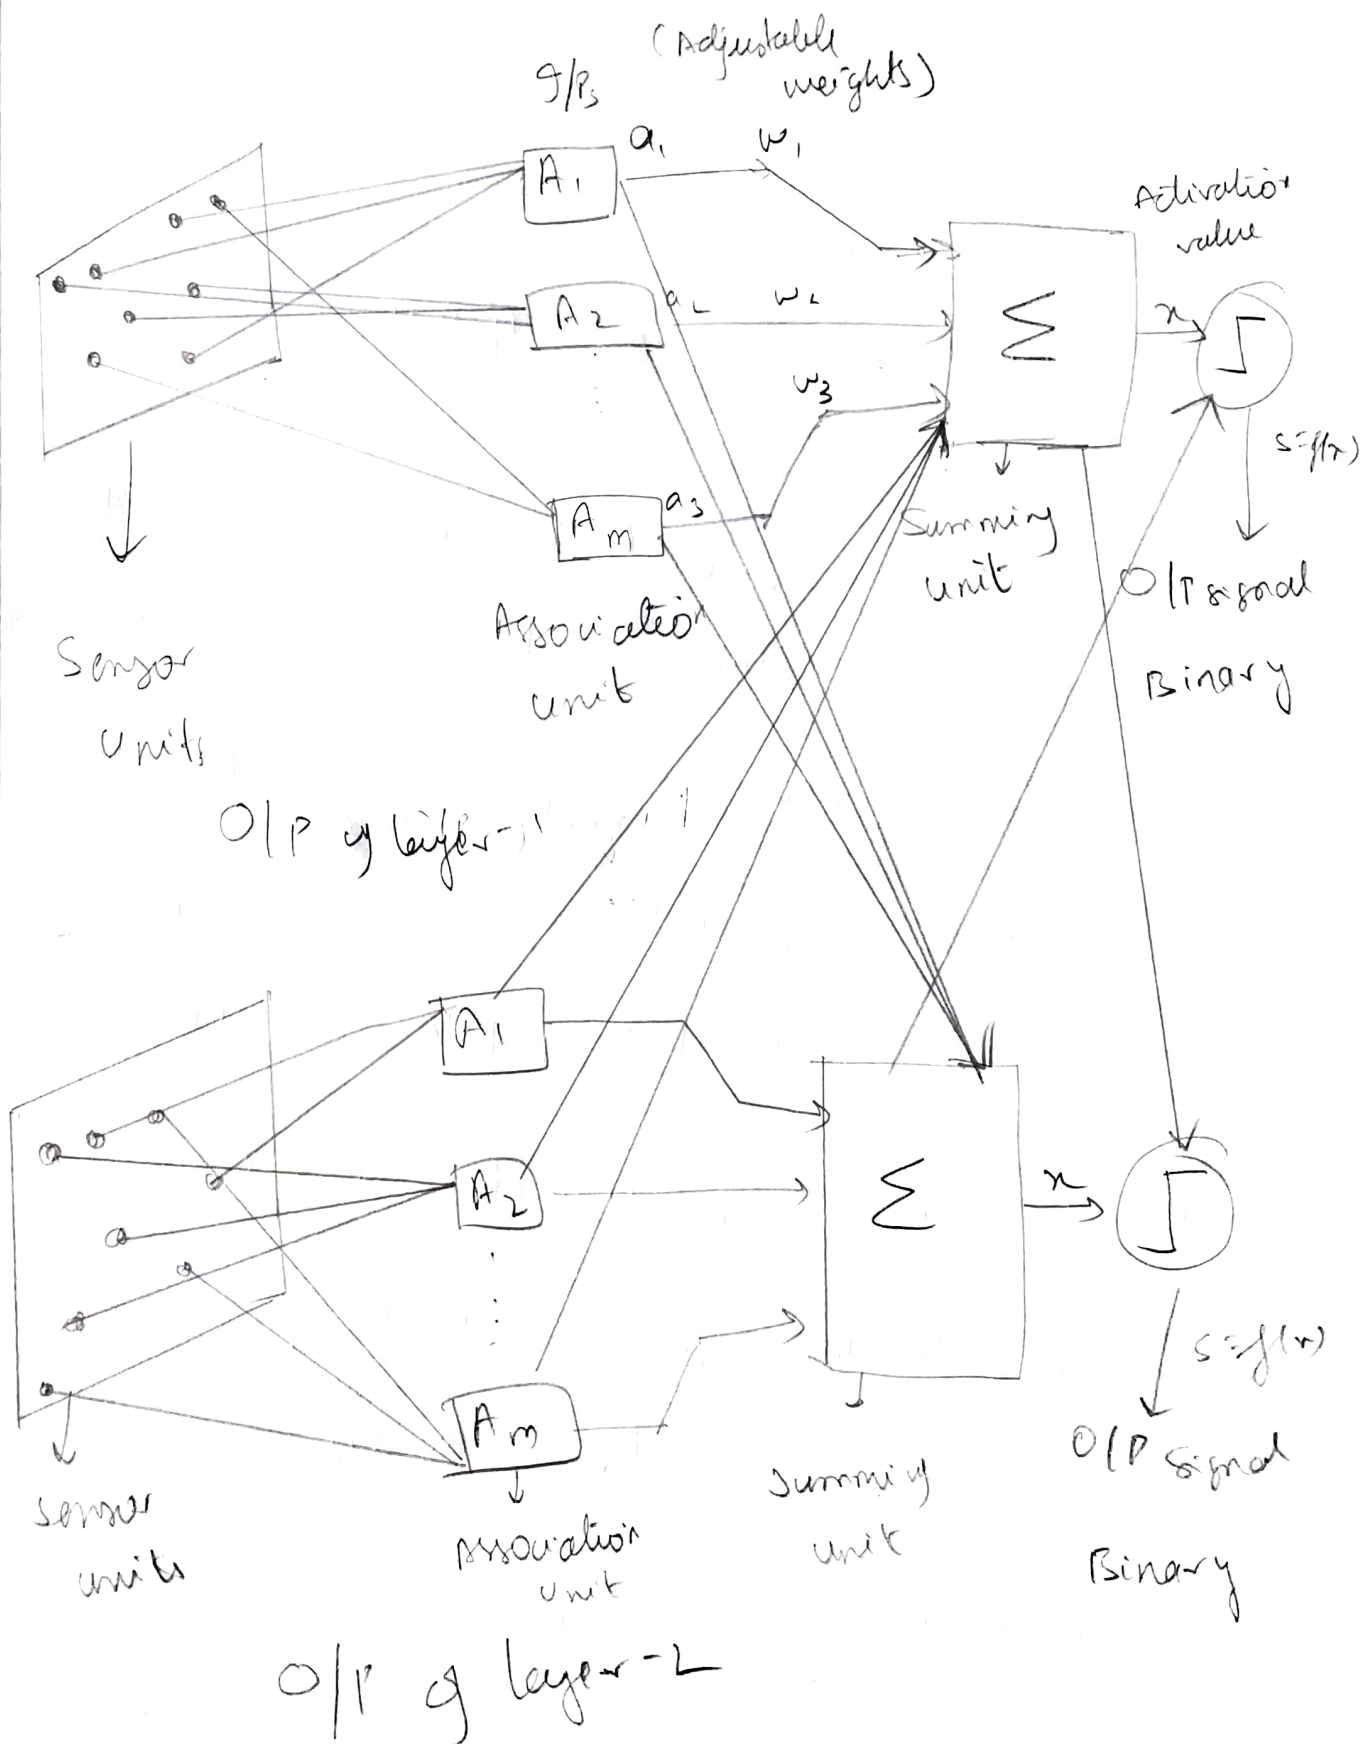 (Adjustable
weights)
I/Ps
A1
a1
w1
A2
a2
w2
w3
Am
a3
Σ
Activation
value
x
s=f(x)
Summing
unit
O/P signal
Binary
Sensor
Units
Association
unit
O/P of layer-1
A1
A2
Am
Σ
x
s=f(x)
O/P signal
Binary
Summing
unit
Sensor
units
Association
unit
O/P of layer-2